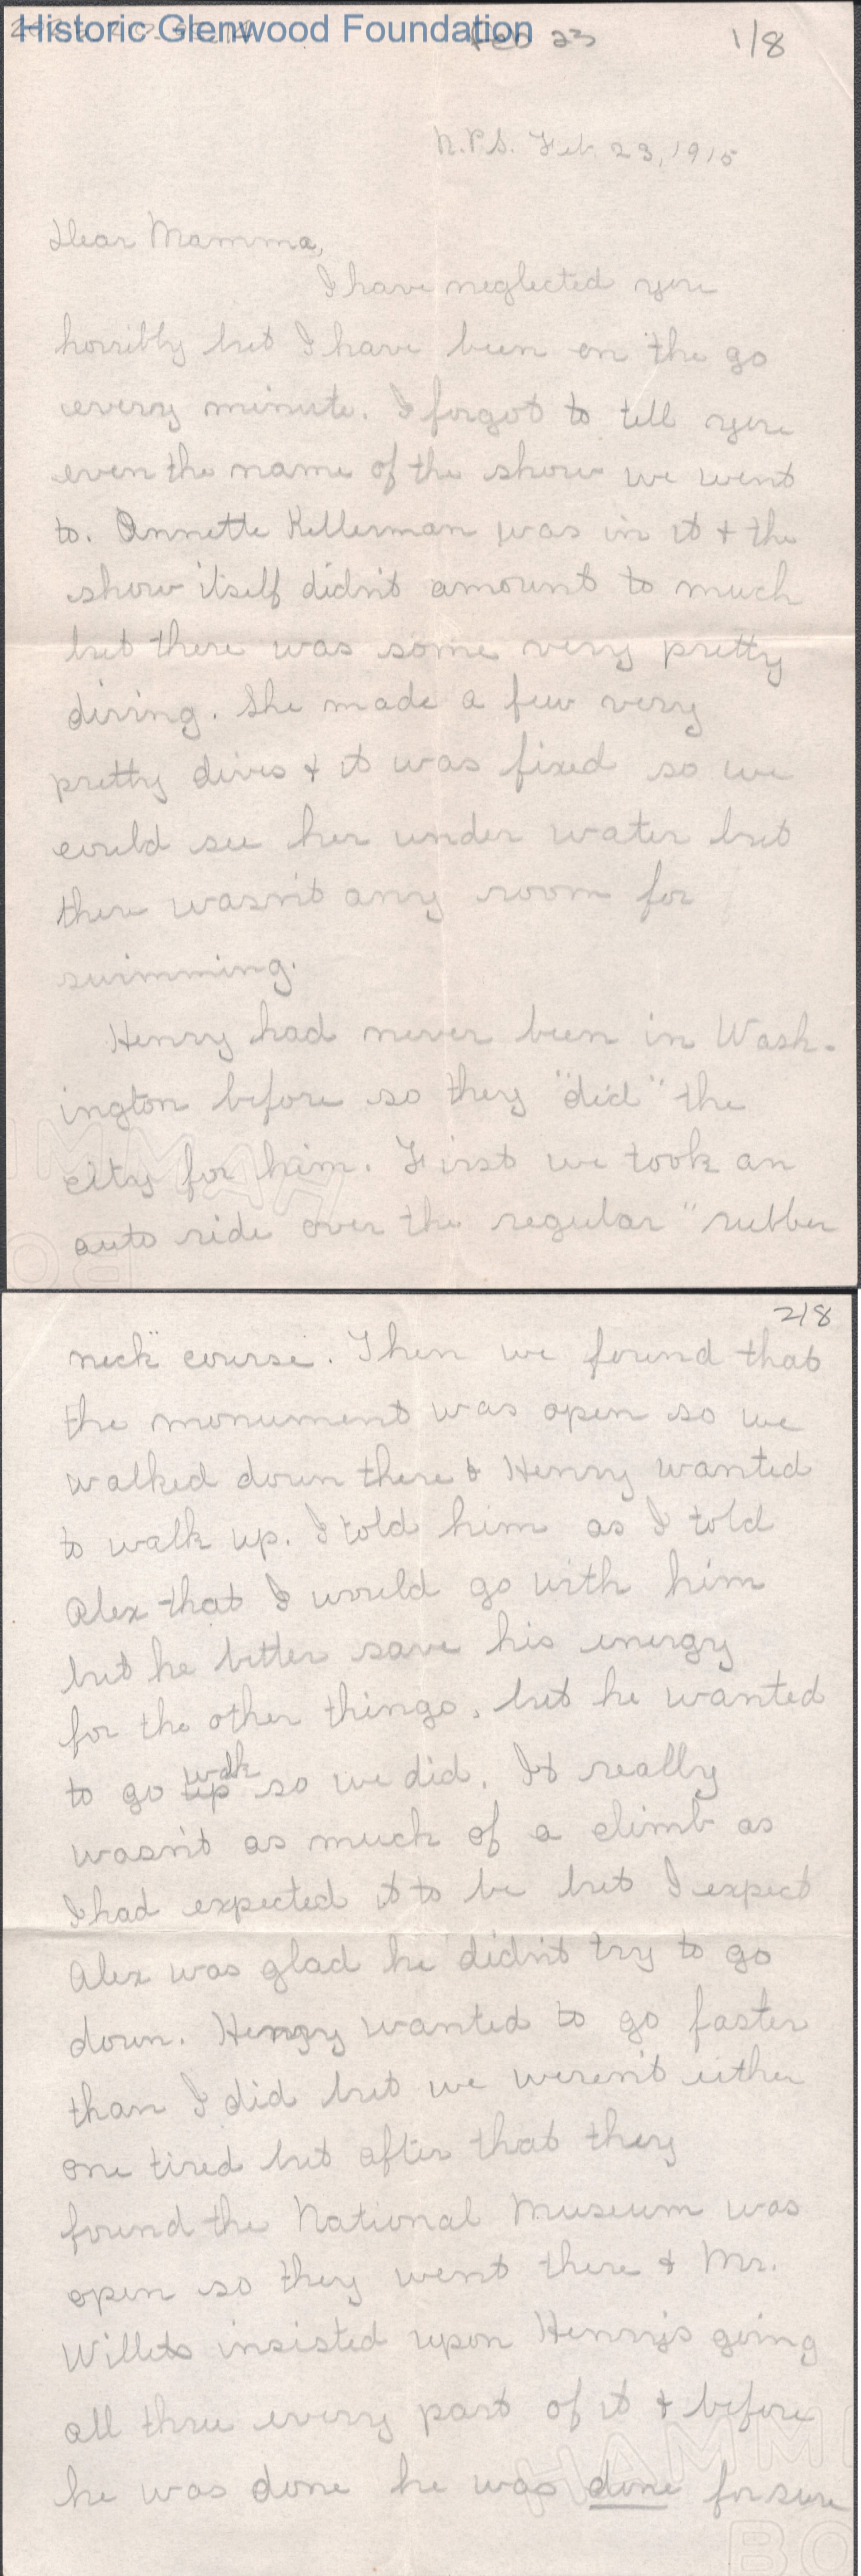 Historic Glenwood Foundation
Feb 23
1/8
N.P.S. Feb. 23, 1915
Dear Mamma,
I have neglected you
horribly but I have been on the go
every minute. I forgot to tell you
even the name of the show we went
to. Annette Kellerman was in it & the
show itself didn't amount to much
but there was some very pretty
diving. She made a few very
pretty dives & it was fixed so we
could see her under water but
there wasn't any room for
swimming.
Henry had never been in Wash-
ington before so they "did" the
city for him. First we took an
auto ride over the regular "rubber
2/8
neck" course. Then we found that
the monument was open so we
walked down there & Henry wanted
to walk up. I told him as I told
Alex that I would go with him
but he better save his energy
for the other things, but he wanted
to go walk up so we did. It really
wasn't as much of a climb as
I had expected it to be but I expect
Alex was glad he didn't try to go
down. Henry wanted to go faster
than I did but we weren't either
one tired but after that they
found the National Museum was
open so they went there & Mr.
Willets insisted upon Henry's going
all thru every part of it & before
he was done he was done for sure
HAMM
BO